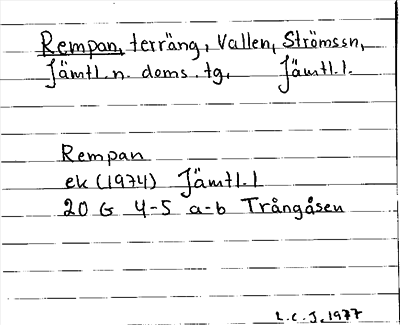 Rempan, terräng, Vallen, Strömssn,
Jämtl. n. doms. tg. Jämtl. l.
Rempan
ek (1974) Jämtl. l
20 G 4-5 a-b Trångåsen
L. C. J. 1977